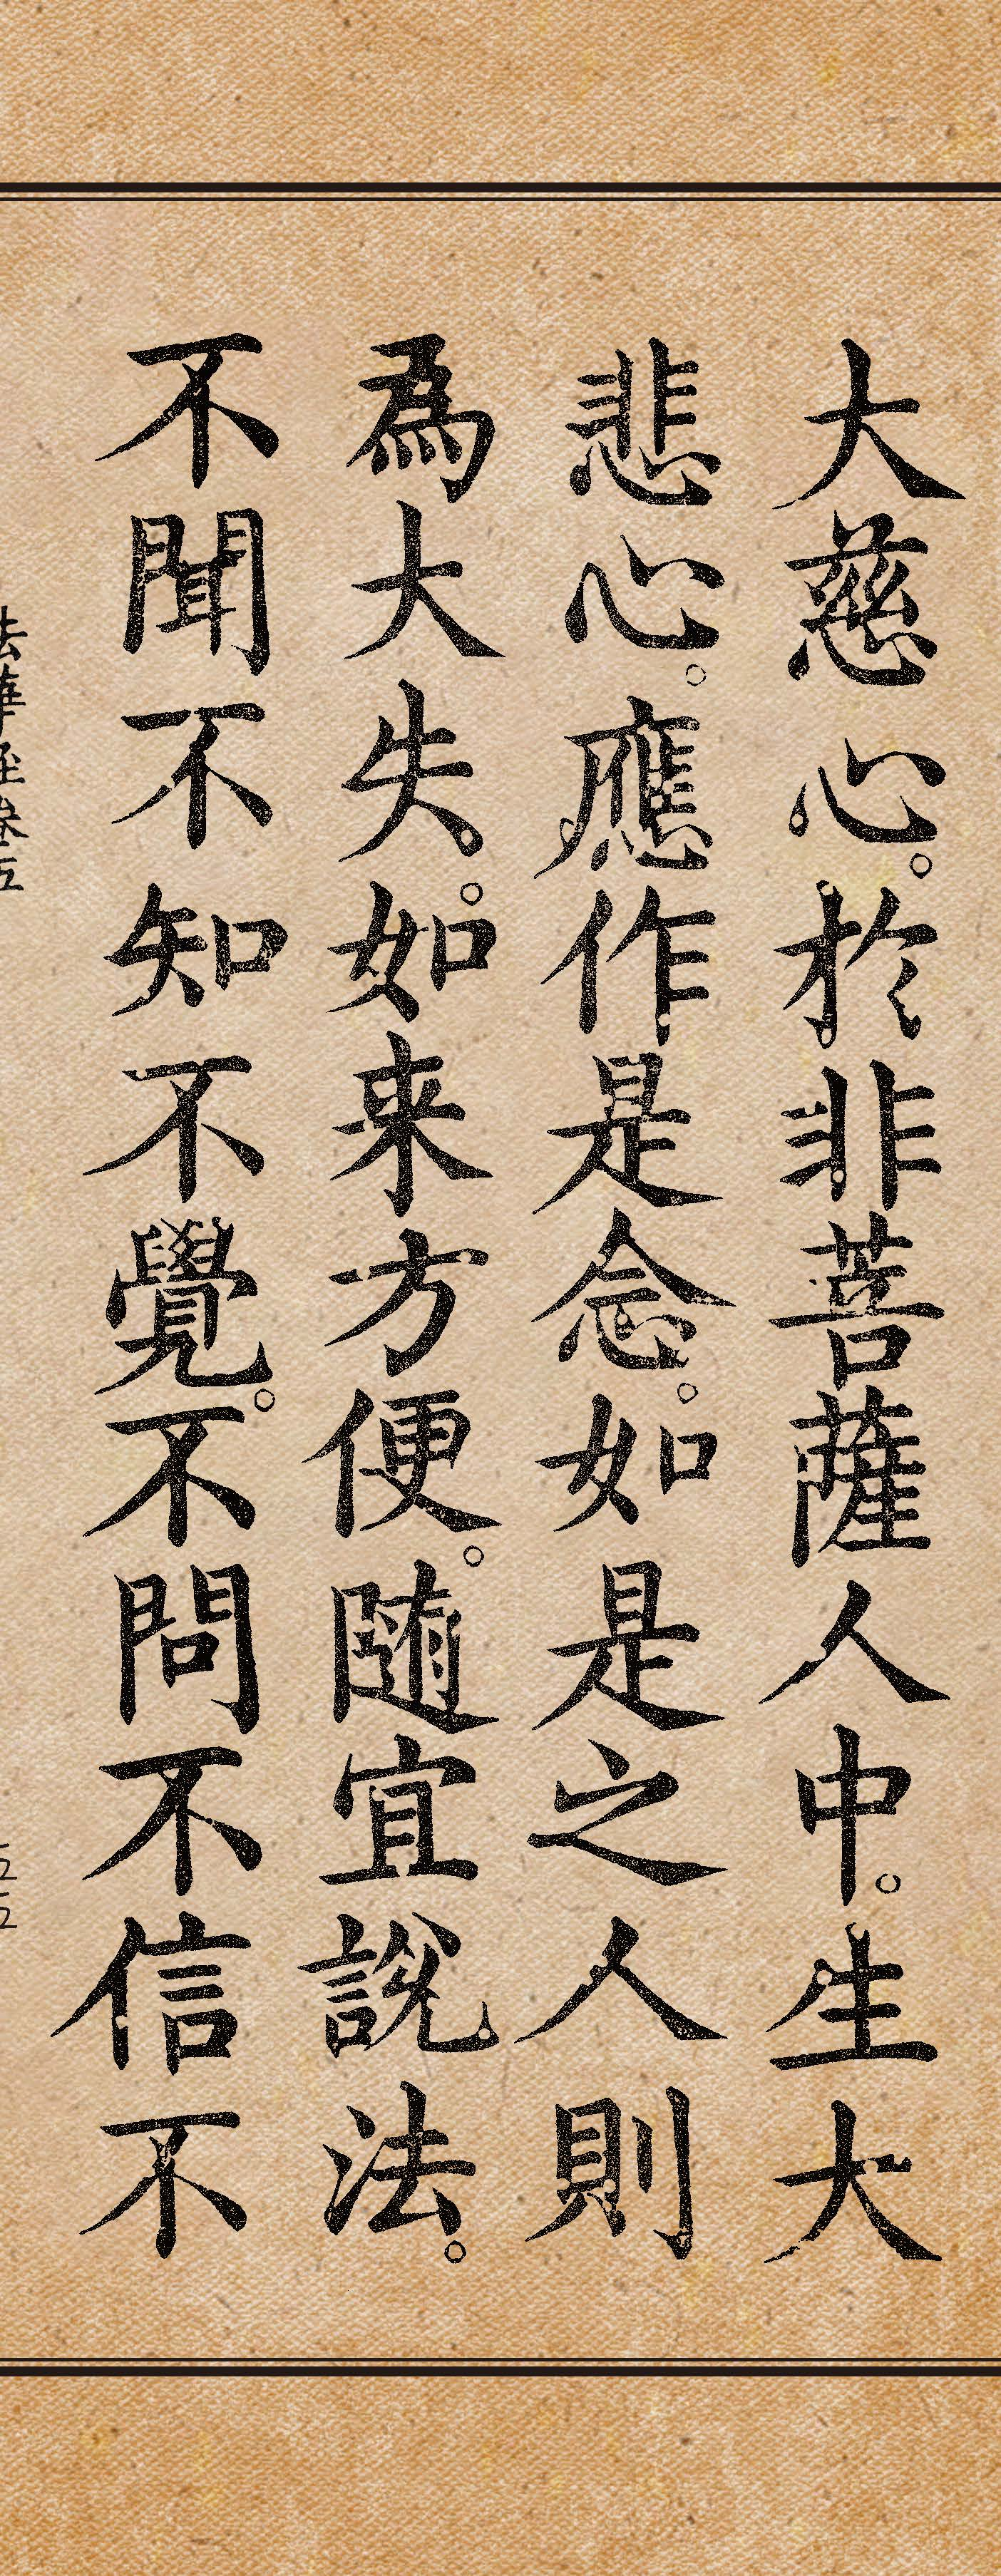 大慈心。於非菩薩人中。生大
悲心。應作是念。如是之人則
為大失。如来方便。随宜說法。
不聞不知不覺。不問不信不
法華経巻五
五五